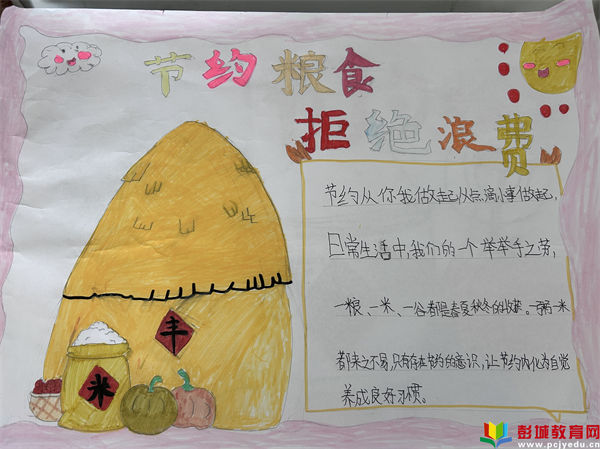 节约粮食
拒绝浪费
节约从你我做起,从点滴小事做起,
日常生活中,我们的一个举手之劳,
一粮、一米、一谷都是春夏秋冬的收获。一米
都来之不易,只有存在节约的意识,让节约内化为自觉
养成良好习惯。
丰
米
彭城教育网
www.pcjyedu.cn